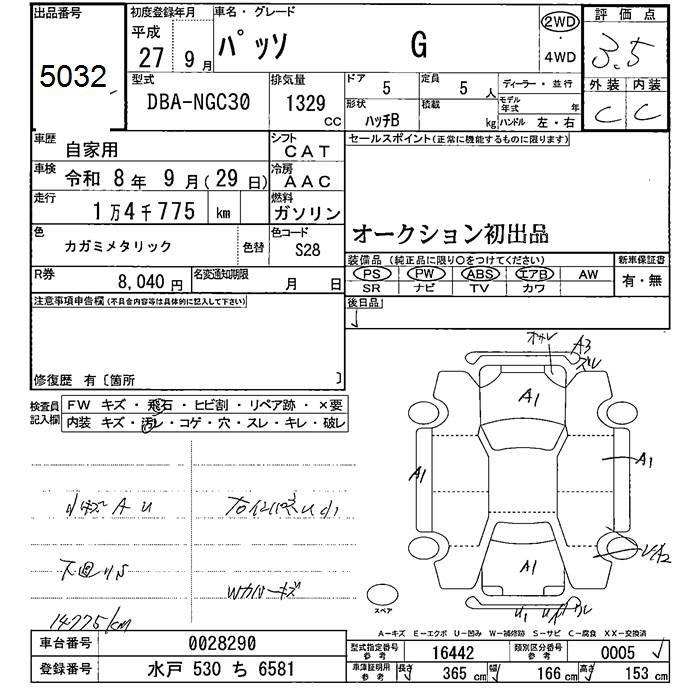 出品番号 初度登録年月 車名・グレード 2WD 評価点
5032 平成 27 9月 パッソ G ・ 4WD 3.5
型式 排気量 ドア 5 定員 5人 ディーラー・並行 外装 内装
DBA-NGC30 1329 cc 形状 ハッチB 積載 kg モデル年式 年 ハンドル 左・右 C C
車歴 自家用 シフト CAT セールスポイント(正常に機能するものに限ります)
車検 令和 8年 9月(29日) 冷房 AAC
走行 1万4千775 km 燃料 ガソリン
オークション初出品
色 カガミメタリック 色替 色コード S28
装備品(純正品に限り○をつけてください) 新車保証書
PS PW ABS エアB AW 有・無
SR ナビ TV カワ
R券 8,040円 名変通知期限 月 日
注意事項申告欄(不具合内容等は具体的に記入して下さい) 後日品
修復歴 有〔箇所 〕
検査員記入欄 FW キズ・飛石・ヒビ割・リペア跡・×要
内装 キズ・汚レ・コゲ・穴・スレ・キレ・破レ
A3
A1
A1 A1
A1
小キズ A U
下廻りS
Wカバーキズ
14775km
U1
スペア
A-キズ E-エクボ U-凹み W-補修跡 S-サビ C-腐食 XX-交換済
車台番号 0028290 型式指定番号 参考 16442 類別区分番号 参考 0005
登録番号 水戸 530 ち 6581 車庫証明用 参考 長さ 365 cm 幅 166 cm 高さ 153 cm